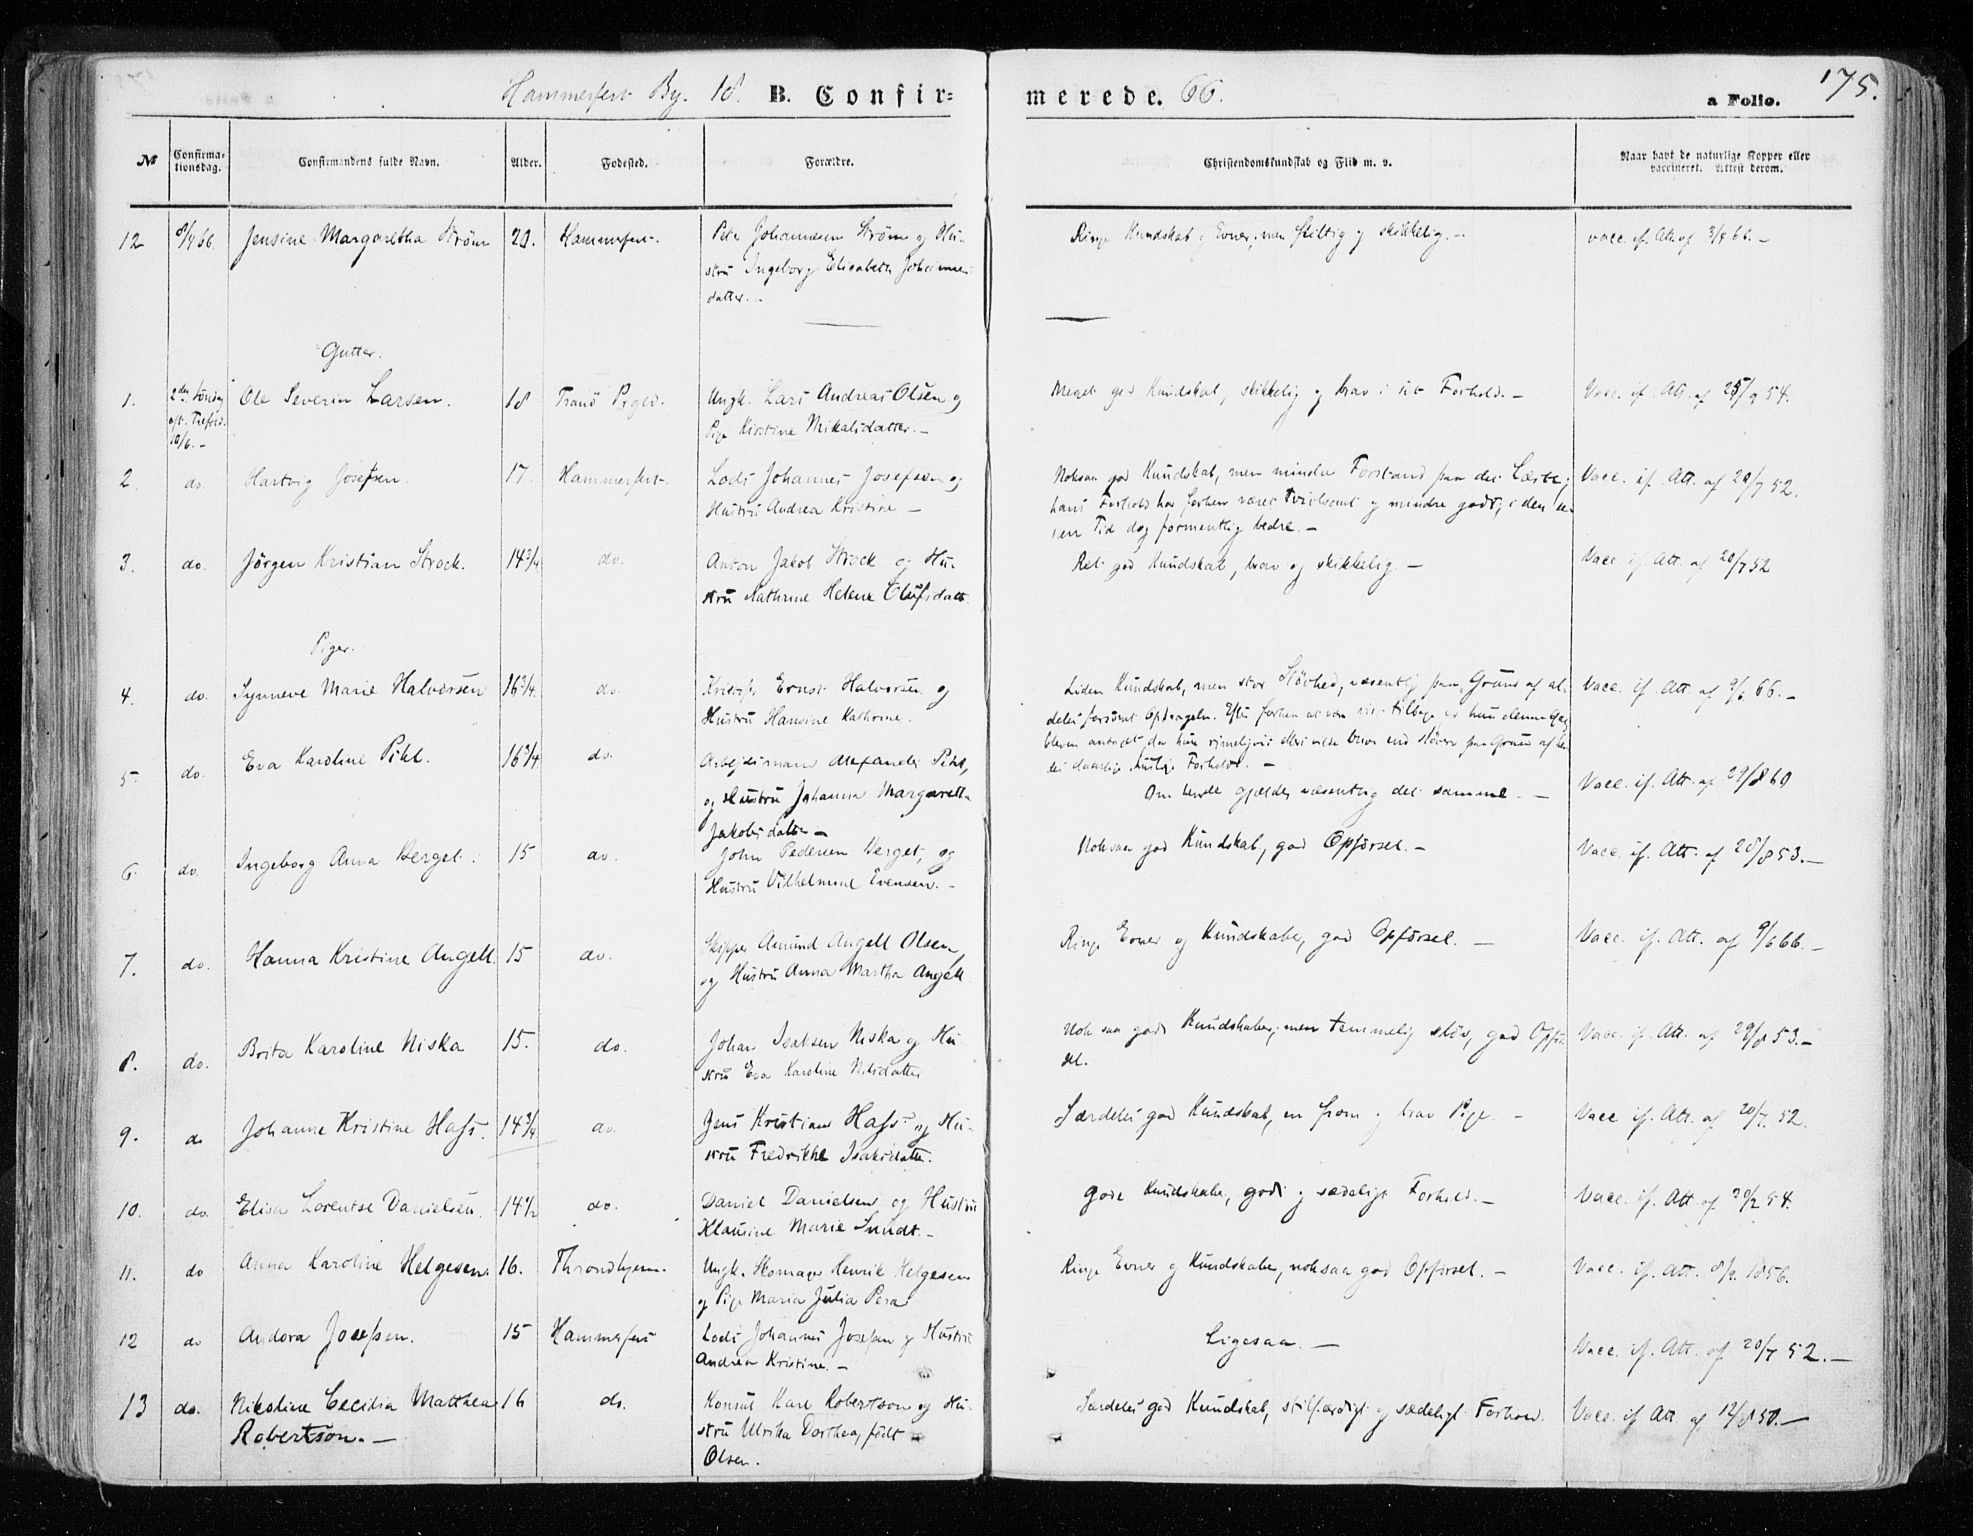 Hammerfest By. 18 B. Confir=
merede. 66. a Folio. 175.
№ Confirma-tionsdag. Confirmandens fulde Navn. Alder. Fødested. Forældre.
Christendomskundskab og Flid m. v. Naar havt de naturlige Kopper eller
vaccineret. Attest derom.
12 8/4 66. Jensine Margaretha Strøm 20. Hammerfest. Peter Johannesen Strøm og Hu-
stru Ingeborg Elisabeth Johannes-
datter.-
Ringe Kundskab og Evner, men flittig og skikkelig.- vacc. if. Att. af 3/4 66.-
Gutter.
1. 2den Søndag Ole Severin Larsen. 18 Tranö Prgld. Ungk. Lars Andreas Olsen og
eft. Trefold.
10/6.- Pige Kirstine Mikalsdatter.-
Meget god Kundskab, skikkelig og brav i sit Forhold.- Vacc. if. Att. af 25/9 54.
2. do. Hartvig Josefsen. 17. Hammerfest. Lods Johannes Josefsen og
Hustru Andrea Kristine -
Noksaa god Kundskab, men mindre Forstand paa det Læste; Vacc. if. Att. af 20/7 52.
hans Forhold har forhen været tvivlsomt og mindre godt, i den se-
nere Tid dog formentlig bedre.-
3. do. Jörgen Kristian Strock. 14 3/4 do. Anton Jakob Strock og Hu-
stru Kathrine Helene Olufsdatt.
Ret god Kundskab, brav og skikkelig - Vacc. if. Att. af 20/7 52
Piger.
4. do. Synneve Marie Halvorsen 16 3/4. do. Ernst Halvorsen og
Hustru Hansine Kathrine.
Liden Kundskab, men stor Slövhed, væsentlig paa Grund af al- Vacc. if. Att. af 9/6 66.-
deles forsömt Opdragelse. Efter forhen at være vist tilbage er hun denne Gang
bleven antaget, da hun rimeligvis ellers vilde blive end slövere paa Grund af hen-
des daarlige huslige Forholde. -
5. do. Eva Karoline Pihl. 16 3/4 do. Arbejdsmand Alexander Pihl,
og Hustru Johanna Margaretha
Jakobsdatter -
Om hende gjælder væsentlig det samme. - Vacc. if. Att. af 29/8 60
6. do. Ingeborg Anna Berget. 15 do. John Pedersen Berget, og
Hustru Vilhelmine Evensen.-
Noksaa god Kundskab, god Opförsel.- Vacc. if. Att. af 28/8 53.-
7. do. Hanna Kristine Angell. 15 do. Skipper Amund Angell Olsen
og Hustru Anna Martha Angell
Ringe Evner og Kundskaber, god Opförsel. - Vacc. if. Att. af 9/6 66.-
8. do. Brita Karoline Niska 15. do. Johan Isaksen Niska og Hu-
stru Eva Karoline Nilsdatter
Nok saa gode Kundskaber, men temmelig slöv, god Opför- Vacc. if. Att. af 29/8 53.-
sel.
9. do Johanne Kristine Hafs. 14 3/4 do. Jens Kristian Hafs og Hu-
stru Fredrikke Isaksdatter.
Særdeles god Kundskab, en from og brav Pige. - Vacc if. Att. af 20/7 52.
10. do. Elisa Lorentse Danielsen. 14 1/2 do. Daniel Danielsen og Hustru
Klausine Marie Sundt.-
Gode Kundskaber, godt og sædeligt Forhold.- Vacc. if. Att. af 20/2 54.
11. do Anna Karoline Helgesen. 16. Throndhjem. Ungk. Skomager Henrik Helgesen
og Pige Maria Julia Pera
Ringe Evner og Kundskaber, noksaa god Opförsel.- Vacc. if. Att. 8/9. 1856.
12 do Andora Josefsen. 15 Hammerfest Lods Johannes Josefsen og Hustru
Andrea Kristine.-
Ligesaa. - Vacc. if. Att. af 20/7 52.-
13 do. Nikoline Cecilia Matthea 16 do. Konsul Karl Robertson og Hu-
Robertson.- stru Ulrika Dorthea, födt
Olsen.
Særdeles god Kundskab, stilfærdigt og sædeligt Forhold. Vacc. if Att. af 12/8 50.-